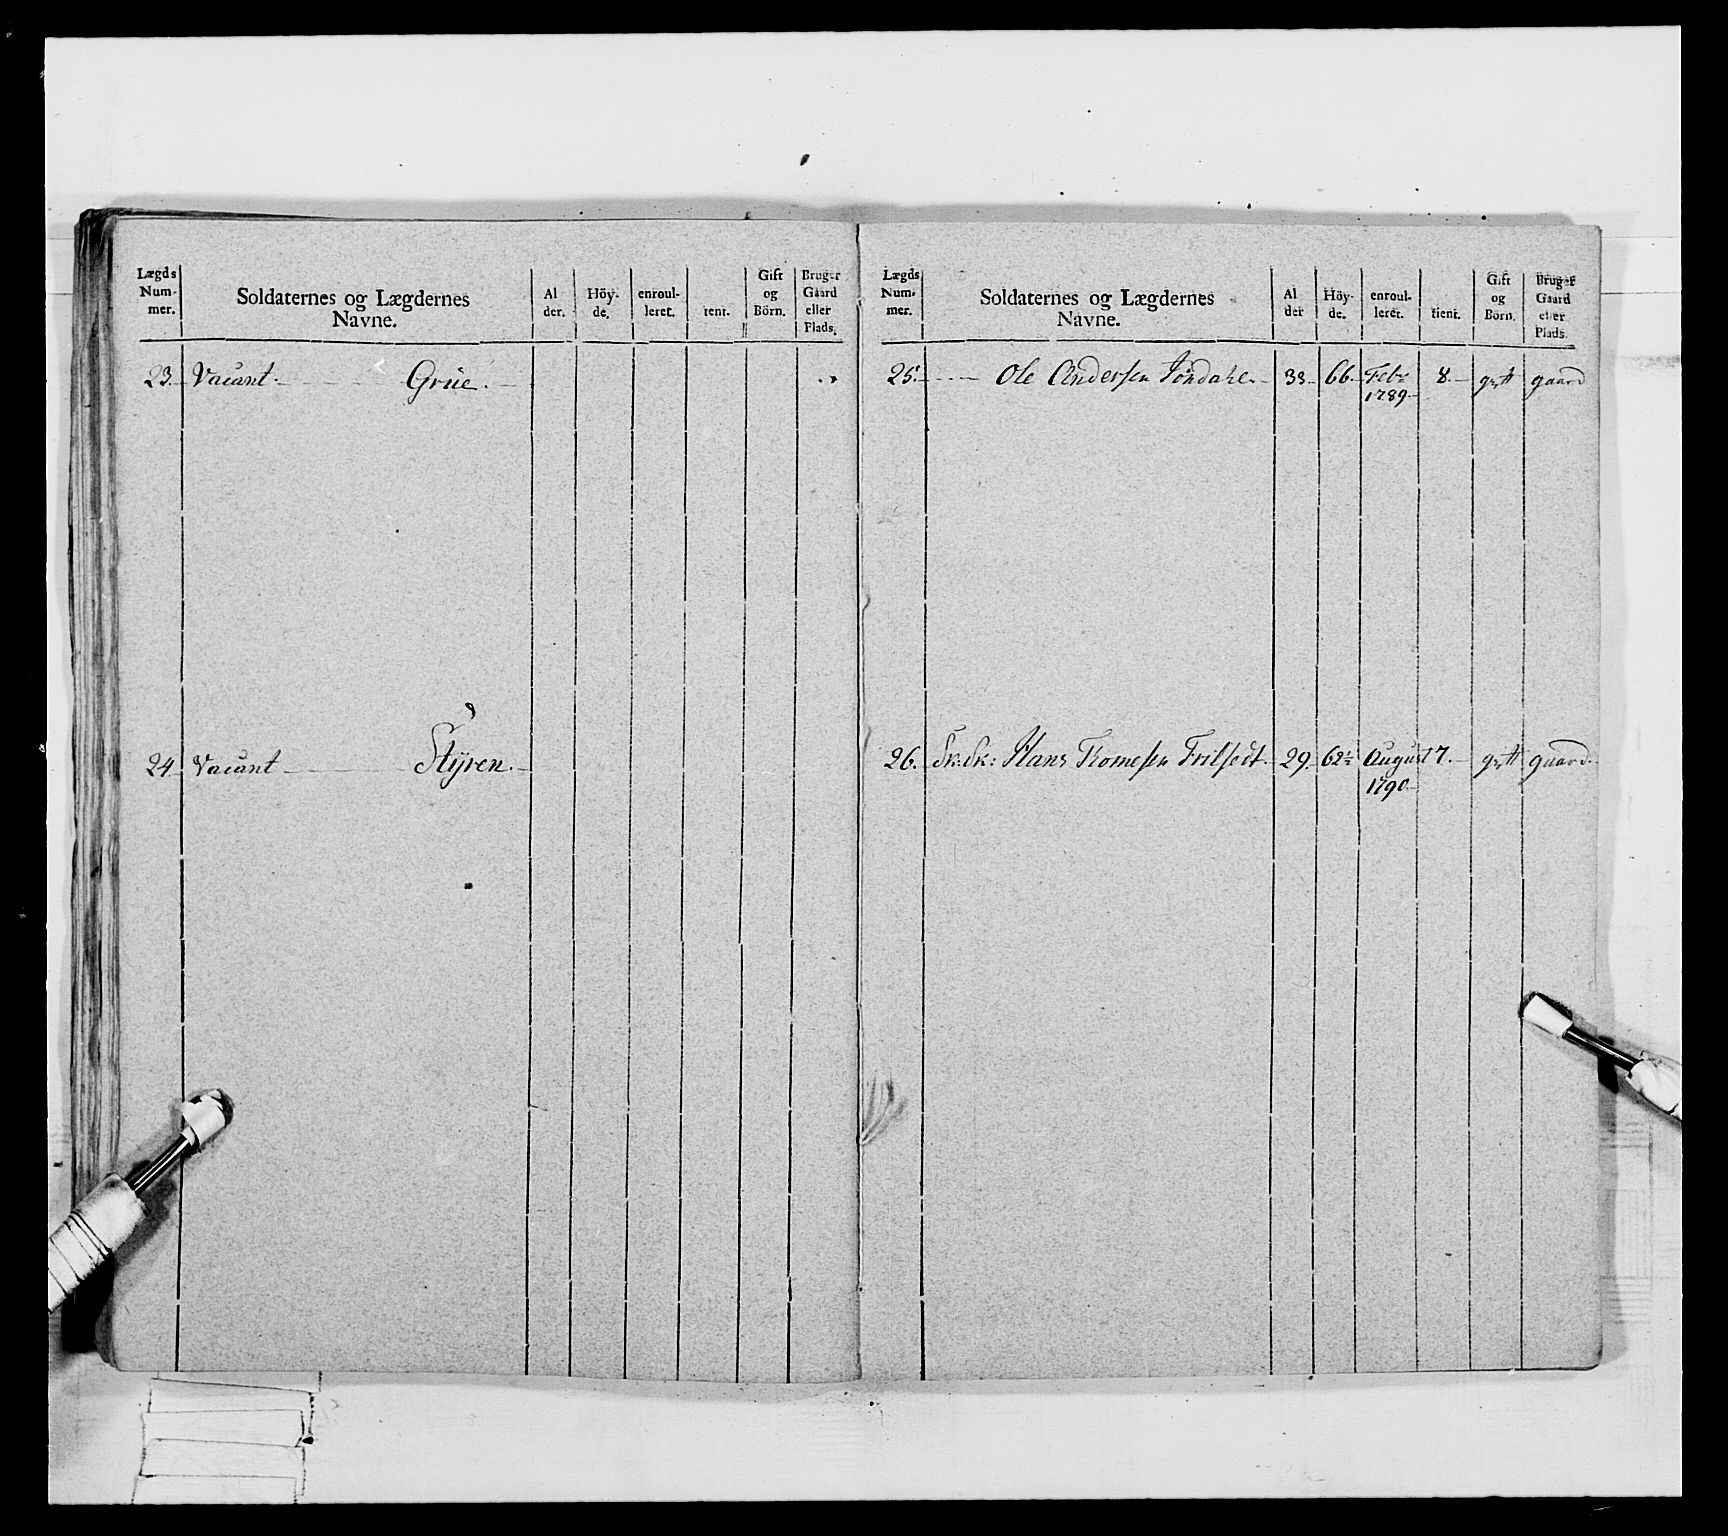 Lægds
Num-
mer.
Soldaternes og Lægdernes
Navne.
Al
der.
Höy-
de.
enroul-
leret.
tent.
Gift
og
Börn.
Bruger
Gaard
eller
Plads.
23. Vacant. Grüe.
24. Vacant Styren.
Lægds
Num-
mer.
Soldaternes og Lægdernes
Navne.
Al
der
Höy-
de.
enroul-
leret.
tient.
Gift
og
Börn.
Bruger
Gaard
eller
Plads.
25. Ole Andersen 33 66 Febr 8. gift gaard
1789
26. Sk:Sk: Hans Tomesen 29. 62½ August 7. gift gaard.
1790